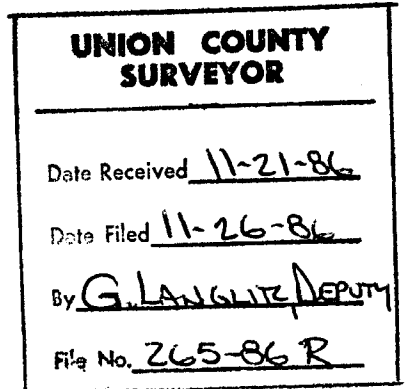 UNION COUNTY
SURVEYOR
Date Received 11-21-86
Date Filed 11-26-86
By G. LANGLITZ, DEPUTY
File No. 265-86 R